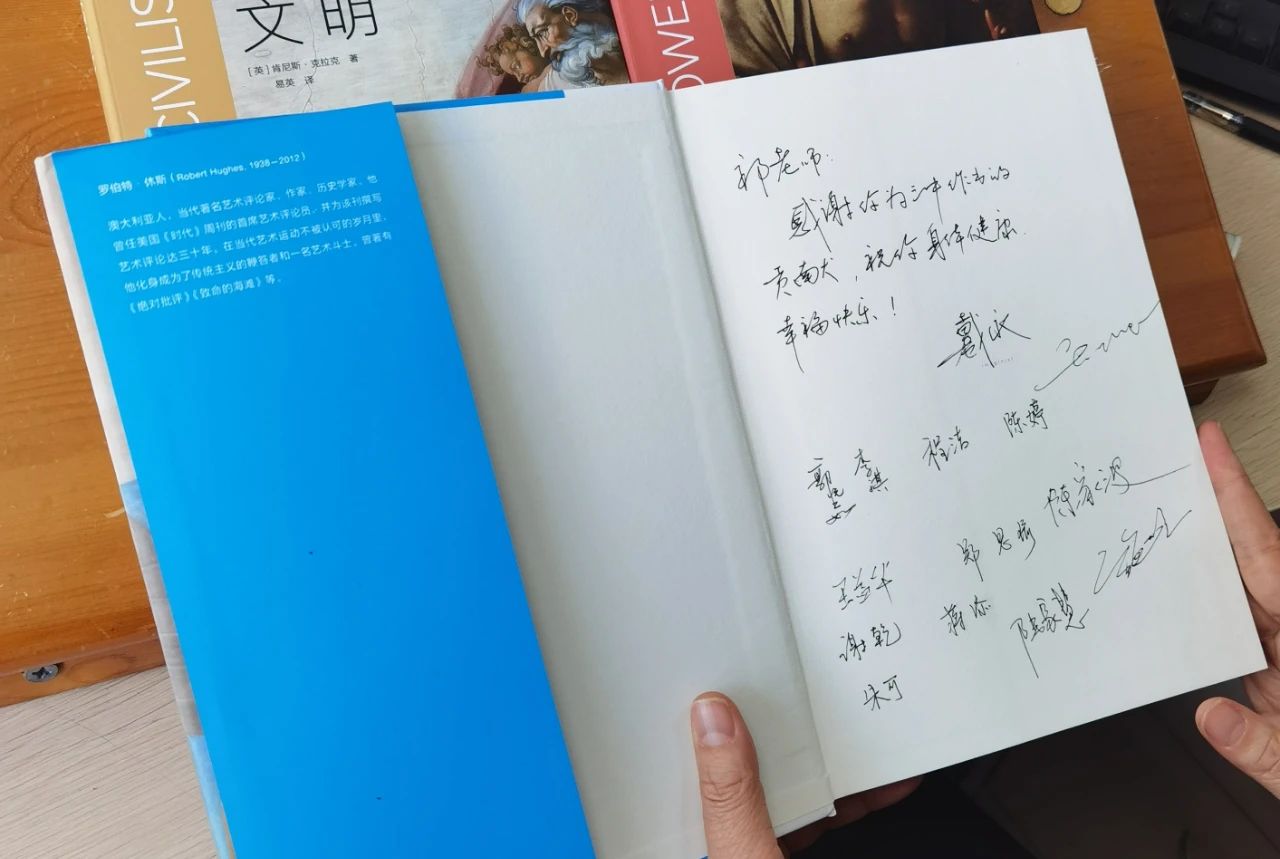 CIVILIS
文明
[英] 肯尼斯·克拉克 著
易英 译
OWE
罗伯特·休斯（Robert Hughes, 1938-2012）
澳大利亚人，当代著名艺术评论家、作家、历史学家，他
曾任美国《时代》周刊的首席艺术评论员，并为该刊撰写
艺术评论达三十年。在当代艺术运动不被认可的岁月里，
他化身成为了传统主义的鞭笞者和一名艺术斗士，曾著有
《绝对批评》《致命的海滩》等。
郭老师：
感谢你为三中作出的
贡献，祝你身体健康
幸福快乐！
李祺 程洁 陈婷
王益华 郑思
谢乾 蒋添
朱可